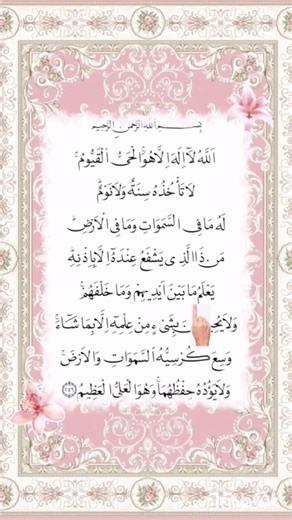 بِسْمِ اللهِ الرَّحْمٰنِ الرَّحِيْمِ
اَللّٰهُ لَآ اِلٰهَ اِلَّا هُوَۚ اَلْحَيُّ الْقَيُّوْمُ ۚ
لَا تَأْخُذُهُ سِنَةٌ وَلَا نَوْمٌۜ
لَهُ مَا فِي السَّمٰوَاتِ وَمَا فِي الْاَرْضِۜ
مَنْ ذَا الَّذِي يَشْفَعُ عِنْدَهُٓ اِلَّا بِاِذْنِهِۜ
يَعْلَمُ مَا بَيْنَ اَيْدِيهِمْ وَمَا خَلْفَهُمْۚ
بِشَيْءٍ مِنْ عِلْمِهِٓ اِلَّا بِمَا شَٓاءَۚ
وَسِعَ كُرْسِيُّهُ السَّمٰوَاتِ وَالْاَرْضَۚ
وَلَا يَؤُ۫دُهُ حِفْظُهُمَاۚ وَهُوَ الْعَلِيُّ الْعَظِيمُ